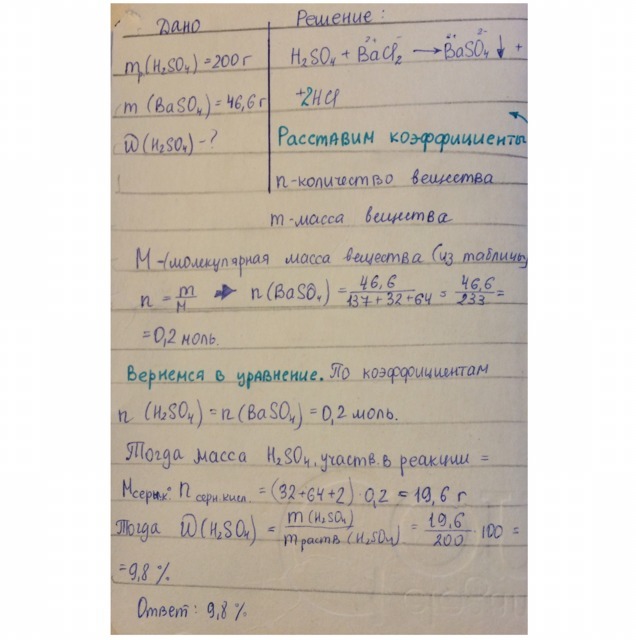 Дано
Решение:
m(H₂SO₄)=200г
H₂SO₄ + Ba²⁺Cl₂⁻ → Ba²⁺SO₄²⁻↓ +
m(BaSO₄)=46,6г
+2HCl
ω(H₂SO₄)-?
Расставим коэффициенты
n-количество вещества
m-масса вещества
M-(молекулярная масса вещества (из таблицы)
n = m/M → n(BaSO₄) = 46,6/137+32+64 = 46,6/233 =
=0,2 моль.
Вернемся в уравнение. По коэффициентам
n (H₂SO₄) = n(BaSO₄) = 0,2 моль.
Тогда масса H₂SO₄, участв. в реакции =
Mсерн.к. · n серн.кисл. = (32+64+2)·0,2 = 19,6 г
Тогда ω(H₂SO₄) = m(H₂SO₄)/mраств(H₂SO₄) = 19,6/200 · 100 =
=9,8 %
Ответ: 9,8 %